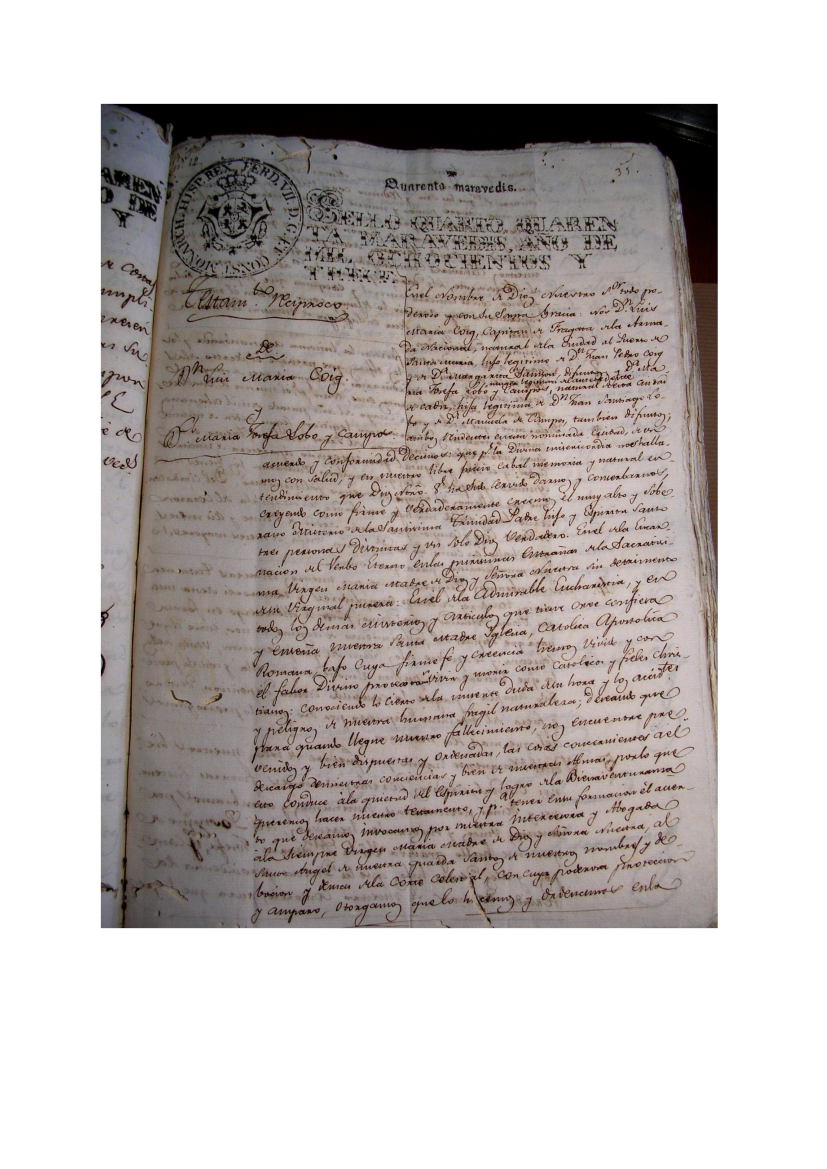 12
31.
FERD. VII. D. G. ET CONST. MONARCH. HISP. REX
Quarenta maravedis.
SELLO QUARTO, QUAREN
TA MARAVEDIS, AÑO DE
MIL OCHOCIENTOS Y
TRECE.
Testam.to Reciproco
De
D.n Luis Maria Coig
y
D.a Maria Josefa Lobo y Campo
En el Nombre de Dios Nuestro S.or todo po-
deroso y con su Santa Gracia: Nos D.n Luis
Maria Coig, Capitan de Fragata de la Arma-
da Nacional, natural de la Ciudad del Puerto de
Santa Maria, hijo legitimo de D.n Juan Pedro Coig
y de D.a Margarita Sanson, difuntos, y D.a Ma
ria Josefa Lobo y Campos, natural de la Ciudad
de Cadiz, hija legitima de D.n Juan Santiago Lo-
bo y de D.a Manuela de Campos, tambien difuntos;
ambos, residentes en esta nominada Ciudad, de un
acuerdo y conformidad Decimos: que p.r la Divina misericordia nos halla
mos con salud, y en nuestro libre juicio cabal memoria y natural en-
tendimiento que Dios Ntro. S.r ha sido servido darnos y conservarnos,
creyendo como firme y verdaderamente creemos el muy alto y sobe
rano Misterio de la Santisima Trinidad Padre Hijo y Espiritu Santo
tres personas Divinas y un solo Dios Verdadero: En el de la Encar
nacion del Verbo Eterno en las purisimas Entrañas de la Sacratisi-
ma Virgen Maria Madre de Dios y Señora Nuestra sin detrimento
de su Virginal pureza: En el de la Admirable Eucharistia, y en
todos los demas misterios y articulos que tiene cree confiesa
y enseña nuestra Santa Madre Yglesia, Catolica Apostolica
Romana, bajo cuya firme fe y creencia hemos vivido y con
el fabor Divino protextamos vivir y morir como catolicos y fieles chris-
tianos: conociendo lo cierto de la muerte duda de su hora y los accidentes
y peligros de nuestra humana fragil naturaleza; deseando que
para quando llegue nuestro fallecimiento, nos encuentre pre
venidos y bien dispuestas y ordenadas, las cosas concernientes al
descargo de nuestras conciencias y bien de nuestras Almas, por lo que
esto conduce á la quietud del Espiritu y logro de la Bienaventuranza
queremos hacer nuestro testamento, y p.a tener en su formacion el acier-
to que deseamos invocamos por nuestra Intercesora y Abogada
á la Siempre Virgen Maria Madre de Dios y Señora Nuestra, al
Santo Angel de nuestra guarda Santos de nuestro nombre y de
bocion y demas de la Corte Celestial, con cuya poderosa proteccion
y amparo, otorgamos que lo hacemos y ordenamos en la